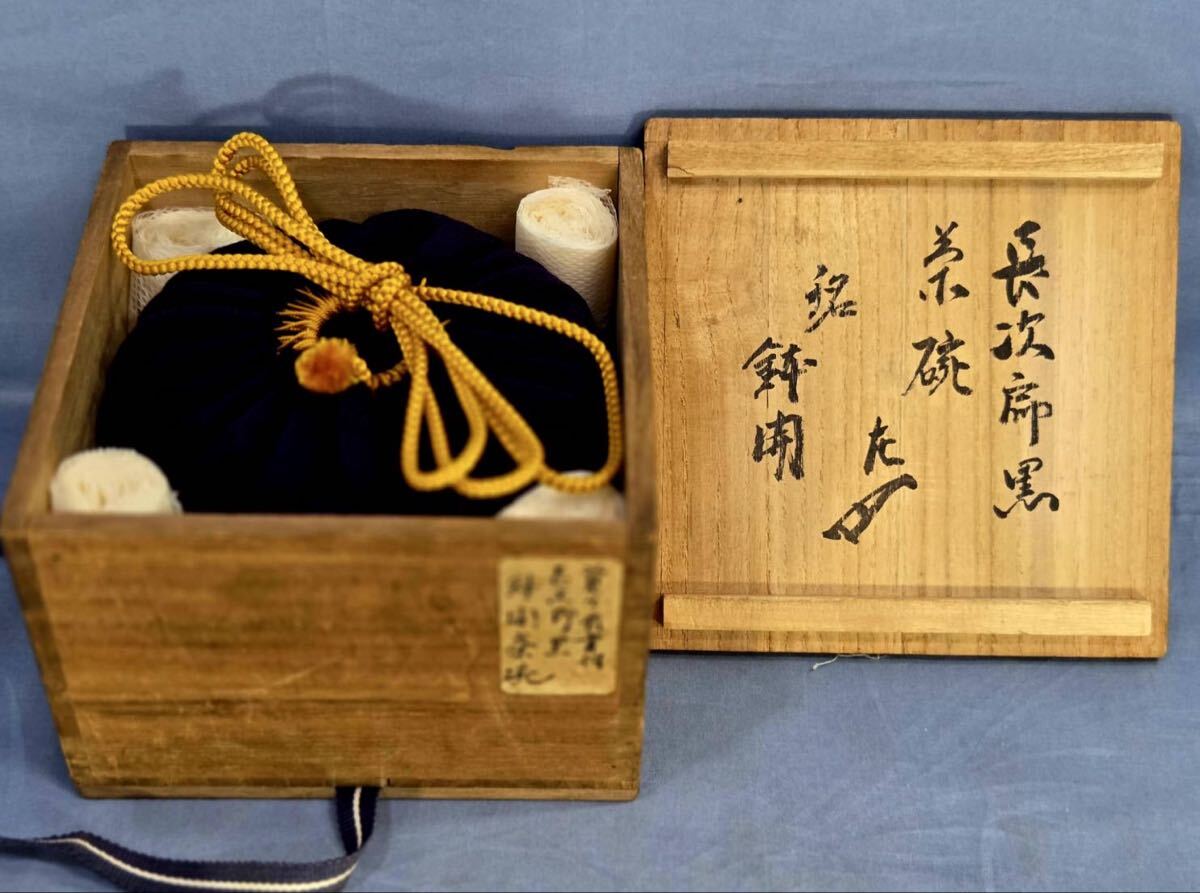 長次郎黒
茶碗
左
銘
鉢開
長次郎黒
鉢開茶碗